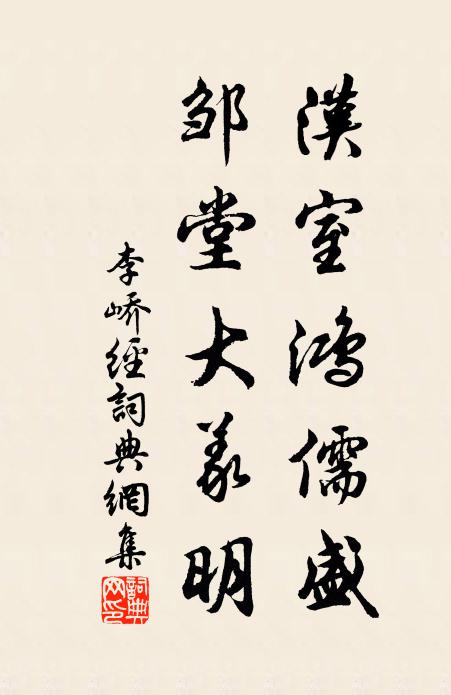 漢室鴻儒盛
邹堂大義明
李嶠經詞典網集
詞典網印